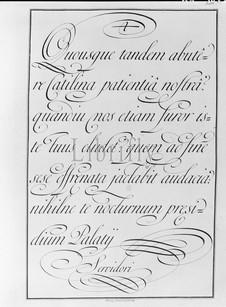 Quousque tandem abuté=
re Catilina patientiâ nostrâ?
quandiu nos etiam furor is=
te Tuus eludet? quem ad fine
sese effrenata jactabit audacia?
nihilne te nocturnum præsi=
dium Palatÿ
Servidori